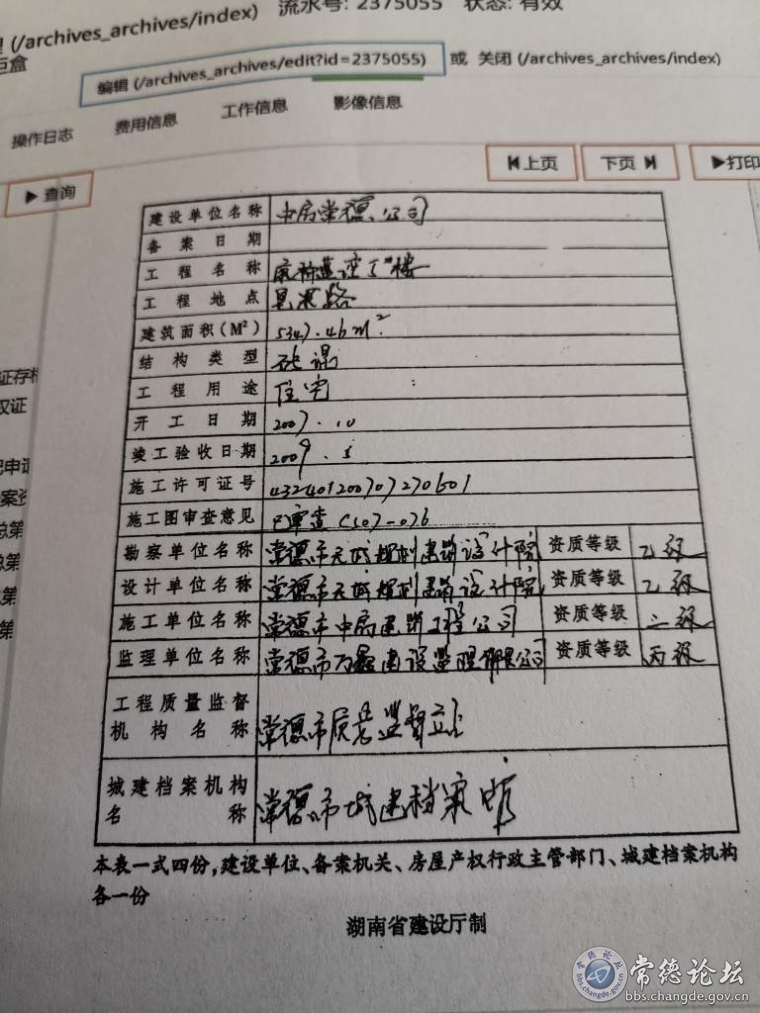 里 (/archives_archives/index) 流水号: 2375055 状态: 有效
巨盒
编辑 (/archives_archives/edit?id=2375055) 或 关闭 (/archives_archives/index)
操作日志 费用信息 工作信息 影像信息
上页 下页 打印
查询
建设单位名称 中房常德公司
备案日期
工程名称 康桥莲湾 楼
工程地点 路
建筑面积(M²) 5347.46m²
结构类型 砖混
工程用途 住宅
开工日期 2007.10
竣工验收日期 2009.5
施工许可证号 432401200707270601
施工图审查意见 审查C507-076
勘察单位名称 常德市天城规划建筑设计院 资质等级 乙级
设计单位名称 常德市天城规划建筑设计院 资质等级 乙级
施工单位名称 常德市中房建筑工程公司 资质等级 二级
监理单位名称 常德市万鑫建设监理有限公司 资质等级 丙级
工程质量监督
机构名称 常德市质监监督站
城建档案机构
名称 常德市城建档案馆
本表一式四份,建设单位、备案机关、房屋产权行政主管部门、城建档案机构
各一份
湖南省建设厅制
证存档
权证
记申请
案资
总第
总第
第
第
常德论坛
bbs.changde.gov.cn